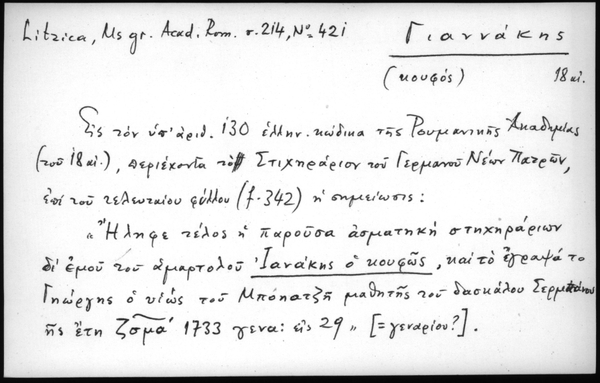 Litzica, Ms gr. Acad. Rom. σ. 214, No= 421
Γιαννάκης
(κουφός) 18 αἰ.
Εἰς τὸν ὑπ' ἀριθ. 130 ἑλλην. κώδικα τῆς Ρουμανικῆς Ἀκαδημίας
(τοῦ 18 αἰ.), περιέχοντα τὸ Στιχηράριον τοῦ Γερμανοῦ Νέων Πατρῶν,
ἐπὶ τοῦ τελευταίου φύλλου (f. 342) ἡ σημείωσις:
„Ἤληφε τέλος ἡ παροῦσα ἀσματηκὴ στηχηράριων
δι' ἐμοῦ τοῦ ἁμαρτολοῦ Ἰανάκης ὁ κουφῶς, καὶ τὸ ἔγραψά το
Γηώργης ὁ υἱὼς τοῦ Μπόηατζῆ μαθητῆς τοῦ δασκάλου
ῆς ἔτη ζσμα' 1733 γενα: εἰς 29 „ [=γεναρίου?].